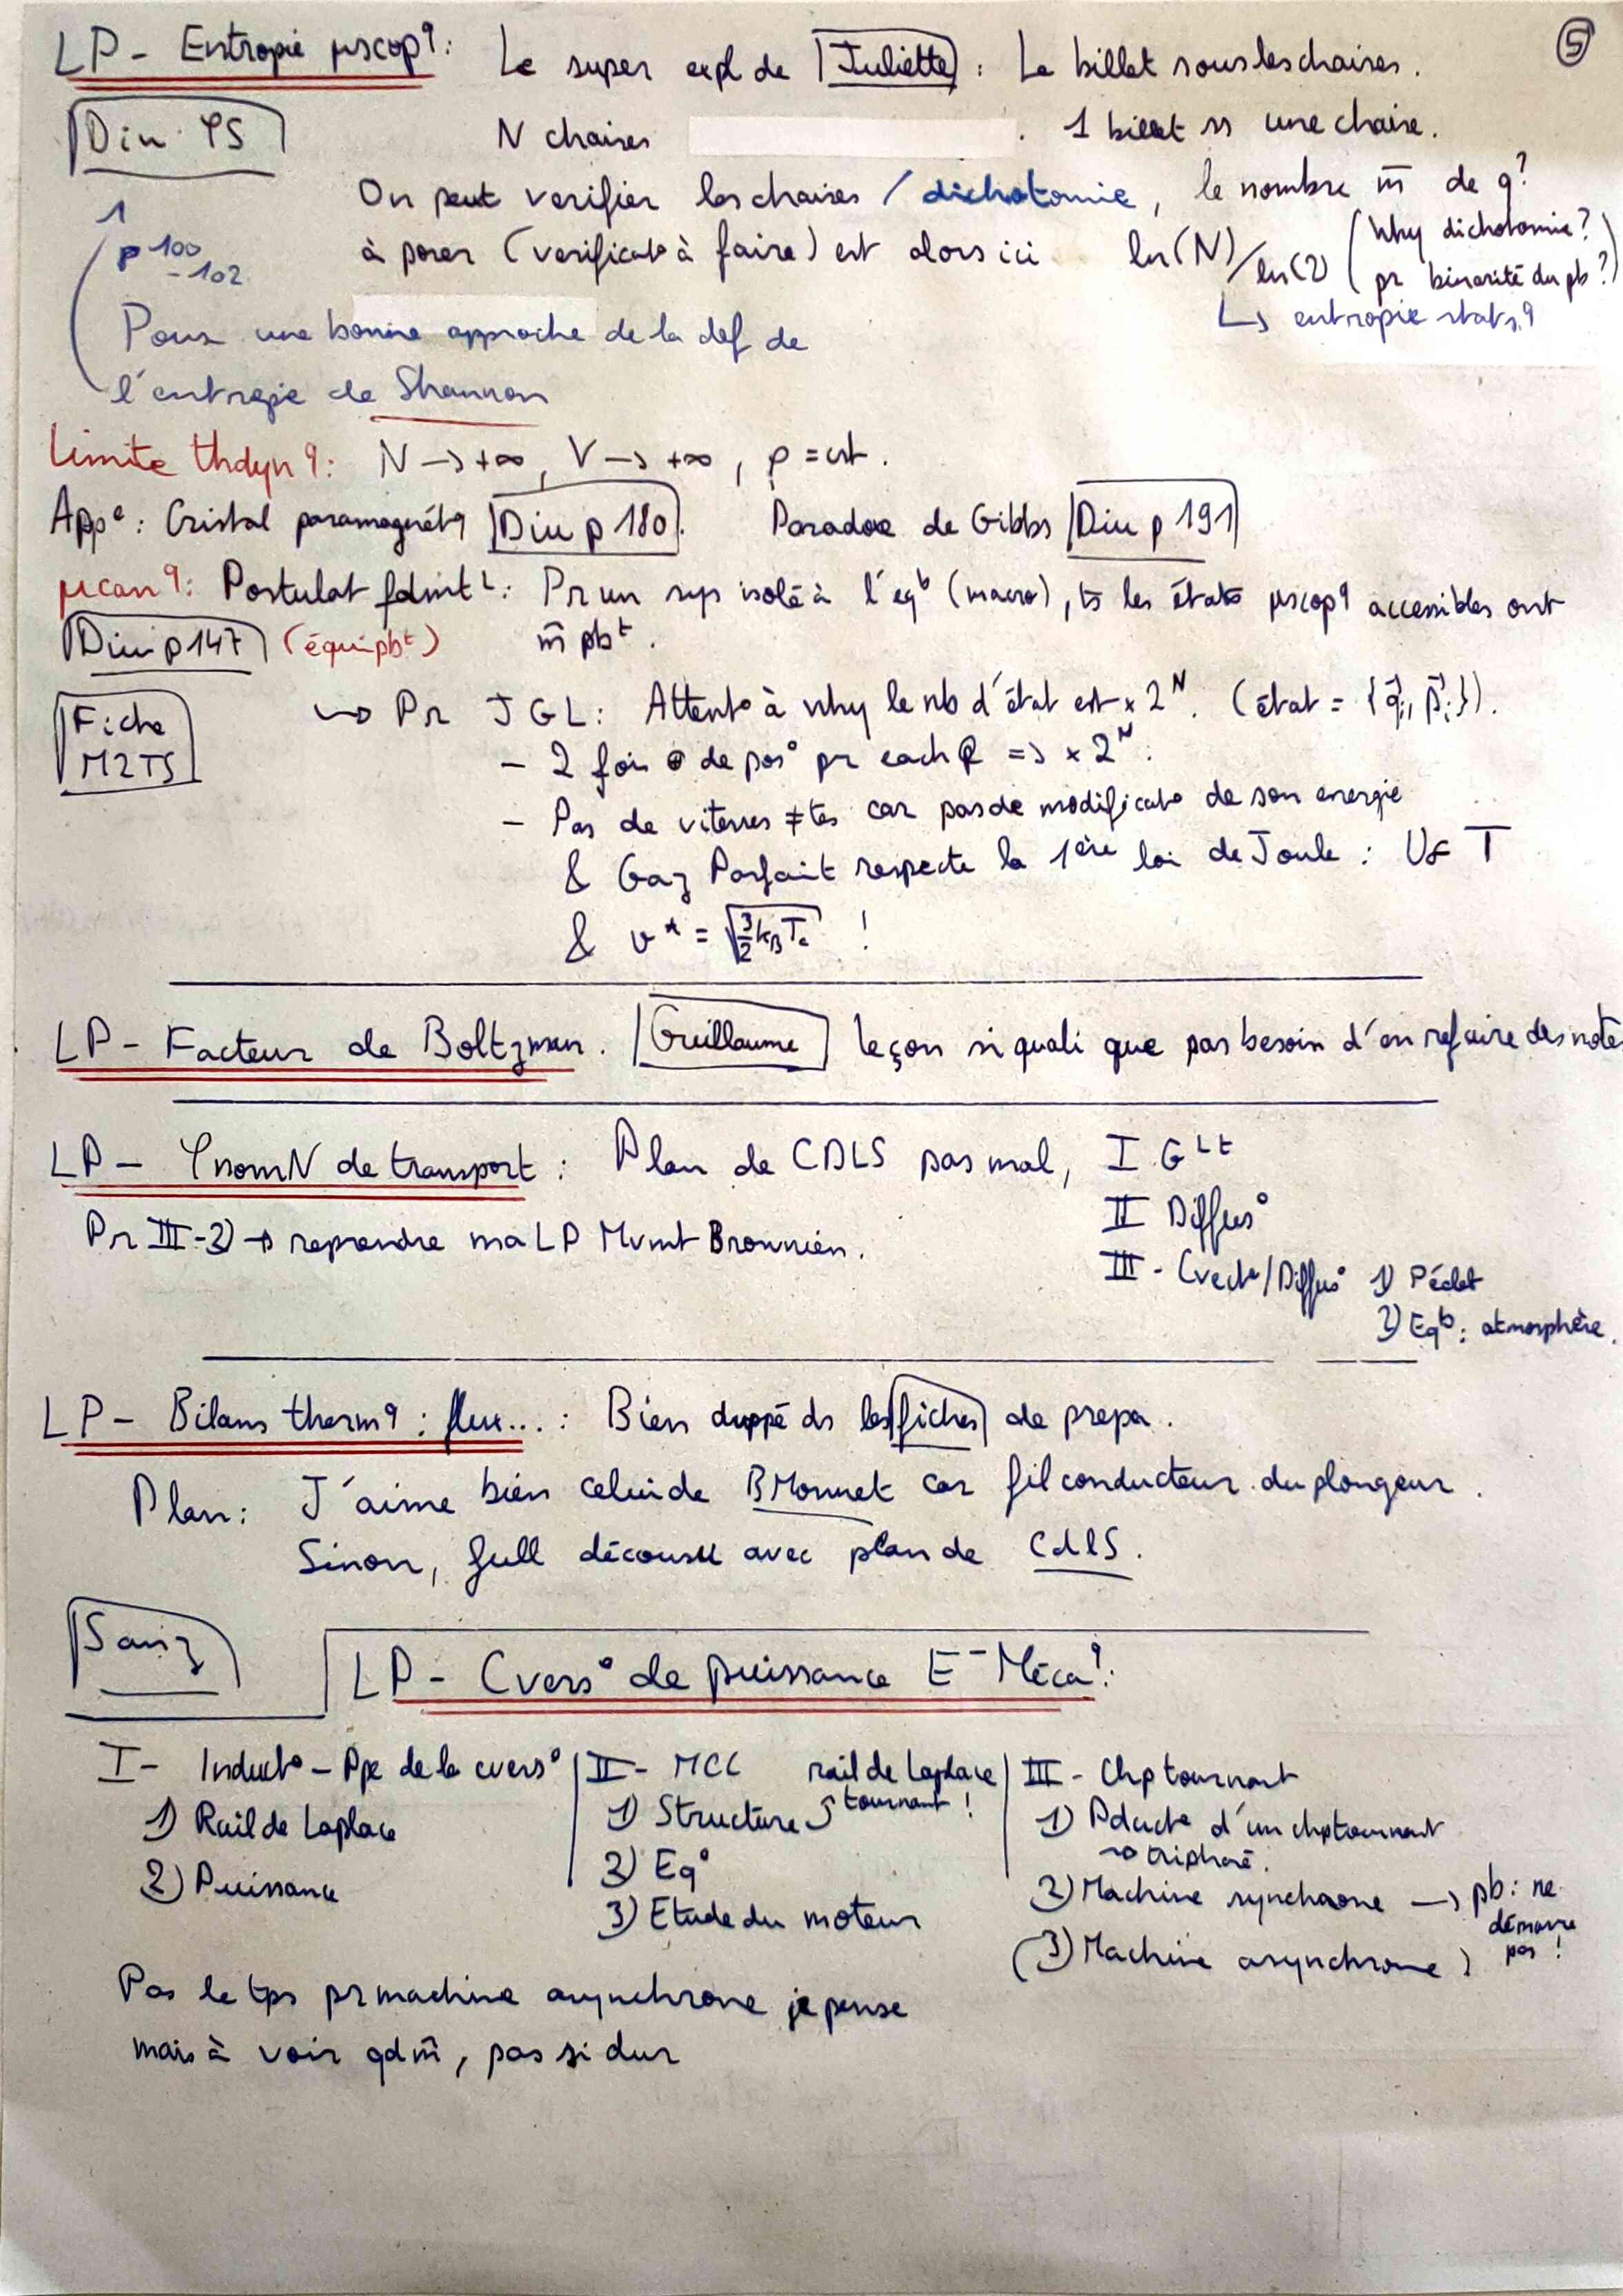 LP - Entropie μscop9: Le super expl de Juliette : Le billet sous les chaises. 5
Diu PS N chaises . 1 billet ss une chaise.
On peut verifier les chaises / dichotomie, le nombre m̄ de q?
p 100 - 102
à poser (verificat° à faire) est alors ici ln(N)/ln(2) (Why dichotomie? pr binarité du pb?)
↳ entropie stats9
Pour une bonne approche de la def de
l'entropie de Shannon
Limite thdyn9: N → +∞, V → +∞, ρ = cst.
App°: Cristal paramagnét9 Diu p 180. Paradoxe de Gibbs Diu p 191
μcan9: Postulat fdmtL: Pr un sys isolé à l'éqb (macro), ts les états μscop9 accessibles ont
Diu p 147 (équipbt) m̄ pbt.
Fiche M2TS
↪ Pr JGL: Attent° à why le nb d'état est × 2^N. (état = {q⃗i, p⃗i}).
- 2 fois + de pos° pr each => × 2^N.
- Pas de vitesses ≠tes car pas de modificat° de son energie
& Gaz Parfait respecte la 1ère loi de Joule : U∝ T
& v* = √(3/2 kBTc) !
LP - Facteur de Boltzman. Guillaume leçon si quali que pas besoin d'en refaire des notes
LP - φnomN de transport : Plan de CDLS pas mal, I GLt
II Diffus°
Pr III-2) → reprendre ma LP Mvmt Brownien.
III - Cvect°/Diffus° 1) Péclet
2) Eqb : atmosphère.
LP - Bilans therm9 : flux... : Bien dvppé ds les fiches de prepa.
Plan: J'aime bien celui de BMonnet car fil conducteur du plongeur.
Sinon, full décousu avec plan de CdlS.
Sanz
LP - Cvers° de puissance E- Méca9:
I - Induct° - Ppe de la cvers°
1) Rail de Laplace
2) Puissance
II - MCC rail de Laplace tournant !
1) Structure
2) Eq°
3) Etude du moteur
III - Chp tournant
1) Pduct° d'un chp tournant
→ triphasé.
2) Machine synchrone → pb: ne démarre pas !
(3) Machine asynchrone)
Pas le tps pr machine asynchrone je pense
mais à voir qd m̄, pas si dur